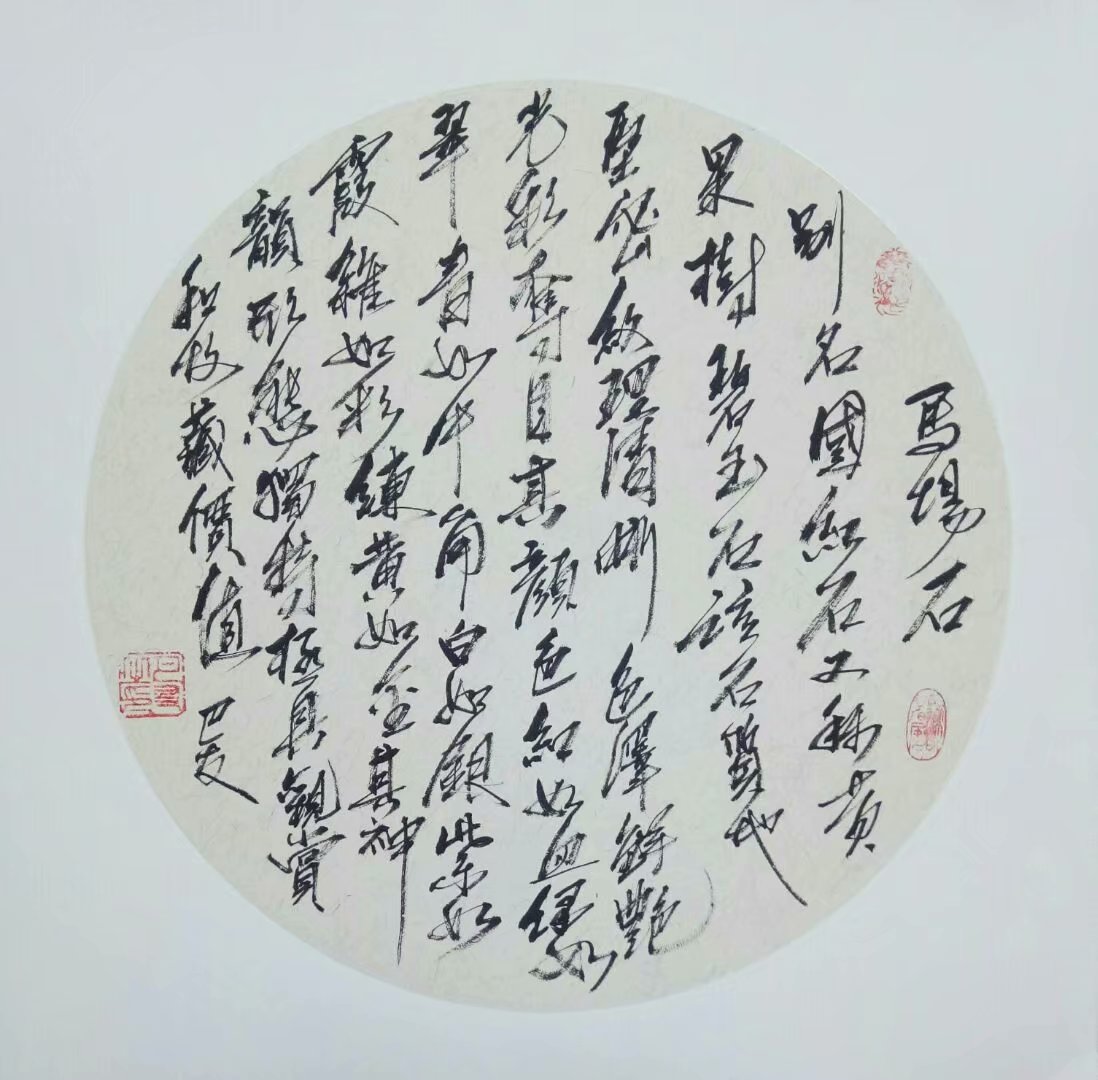 馬場石
別名國紅石又稱黃
果樹碧玉石該石質地
堅密紋理清晰色澤鮮艷
光彩奪目其顏色紅如血綠如
翠青如牛角白如銀紫如
霞雜如彩練黃如金其神
韻形態獨特極具觀賞
和收藏價值 巴